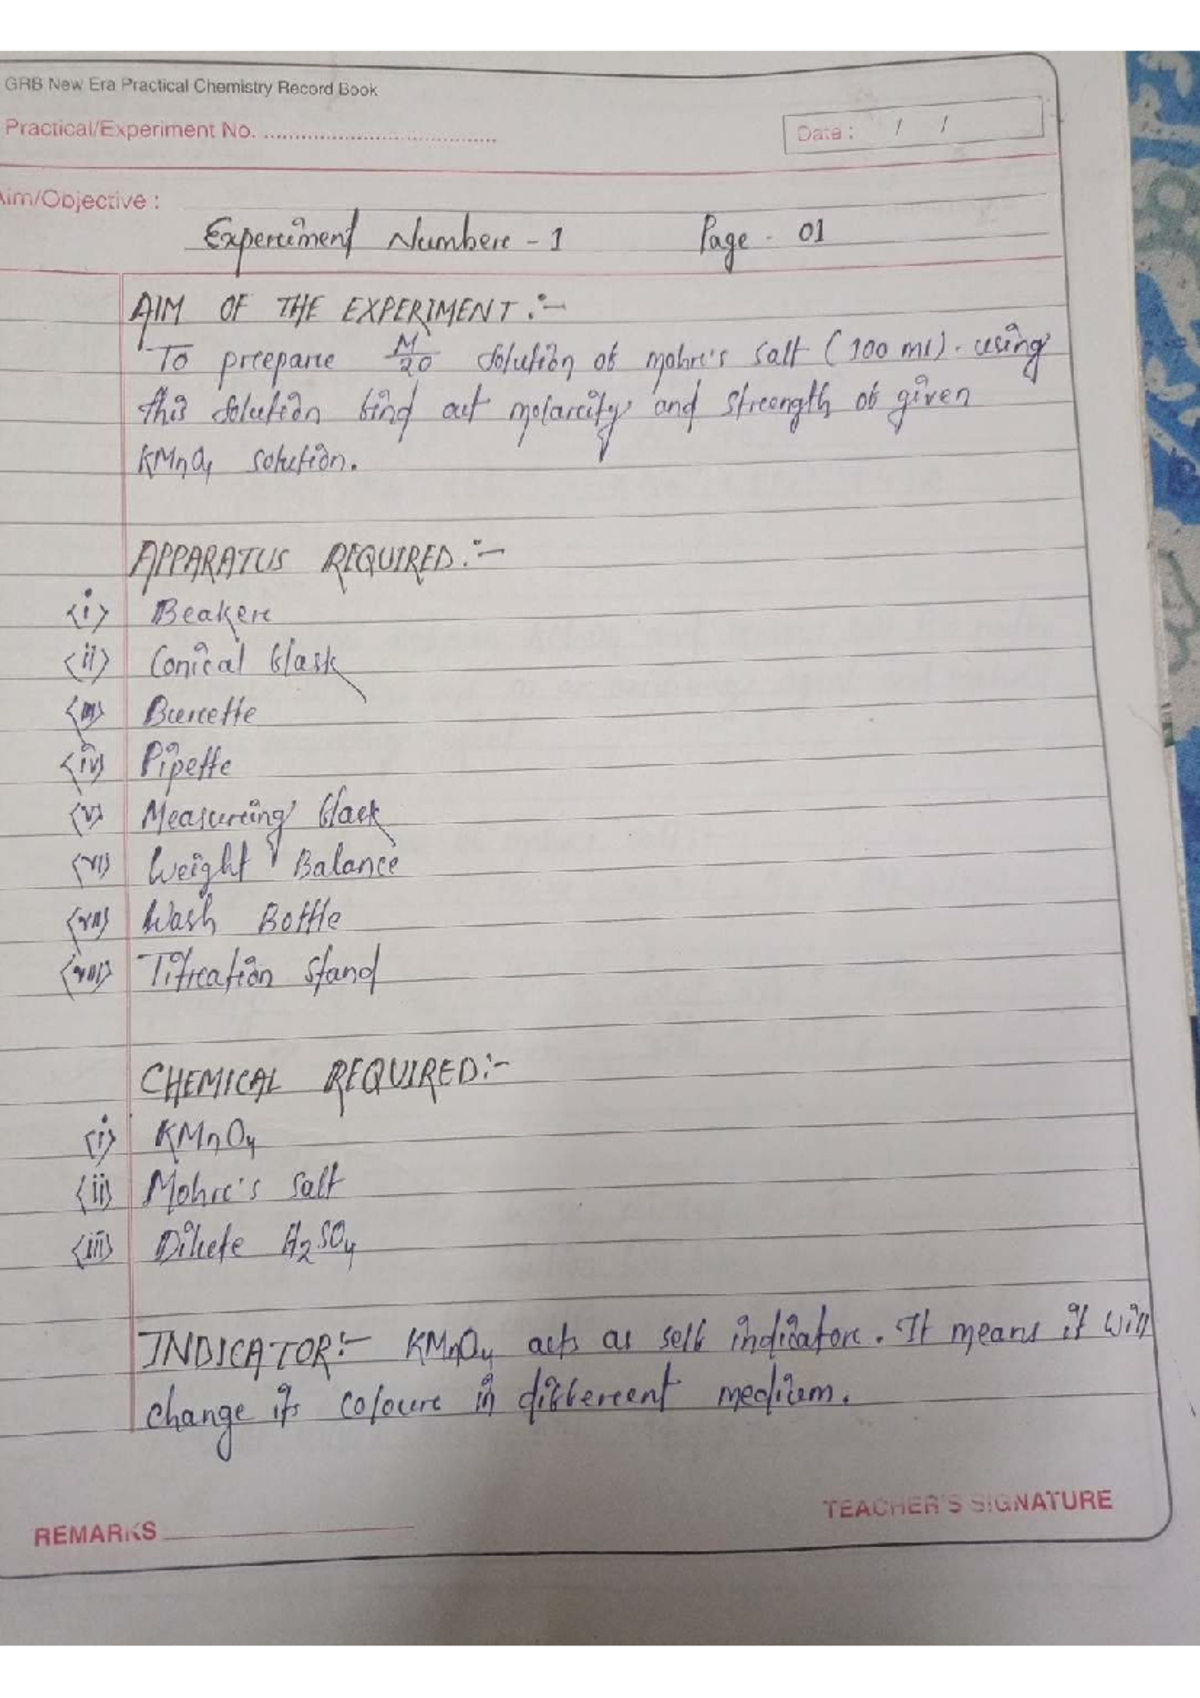 GRB New Era Practical Chemistry Record Book
Practical/Experiment No. ....................................
Date : / /
Aim/Objective :
Experiment Number - 1 Page - 01
AIM OF THE EXPERIMENT :-
To prepare M/20 solution of mohr's salt (100 ml). using
this solution find out molarity and strength of given
KMnO4 solution.
APPARATUS REQUIRED :-
(i) Beaker
(ii) Conical flask
(iii) Burette
(iv) Pipette
(v) Measuring flask
(vi) Weight Balance
(vii) Wash Bottle
(viii) Titration stand
CHEMICAL REQUIRED:-
(i) KMnO4
(ii) Mohr's salt
(iii) Dilute H2SO4
INDICATOR:- KMnO4 acts as self indicator. It means it will
change its colour in different medium.
REMARKS
TEACHER'S SIGNATURE